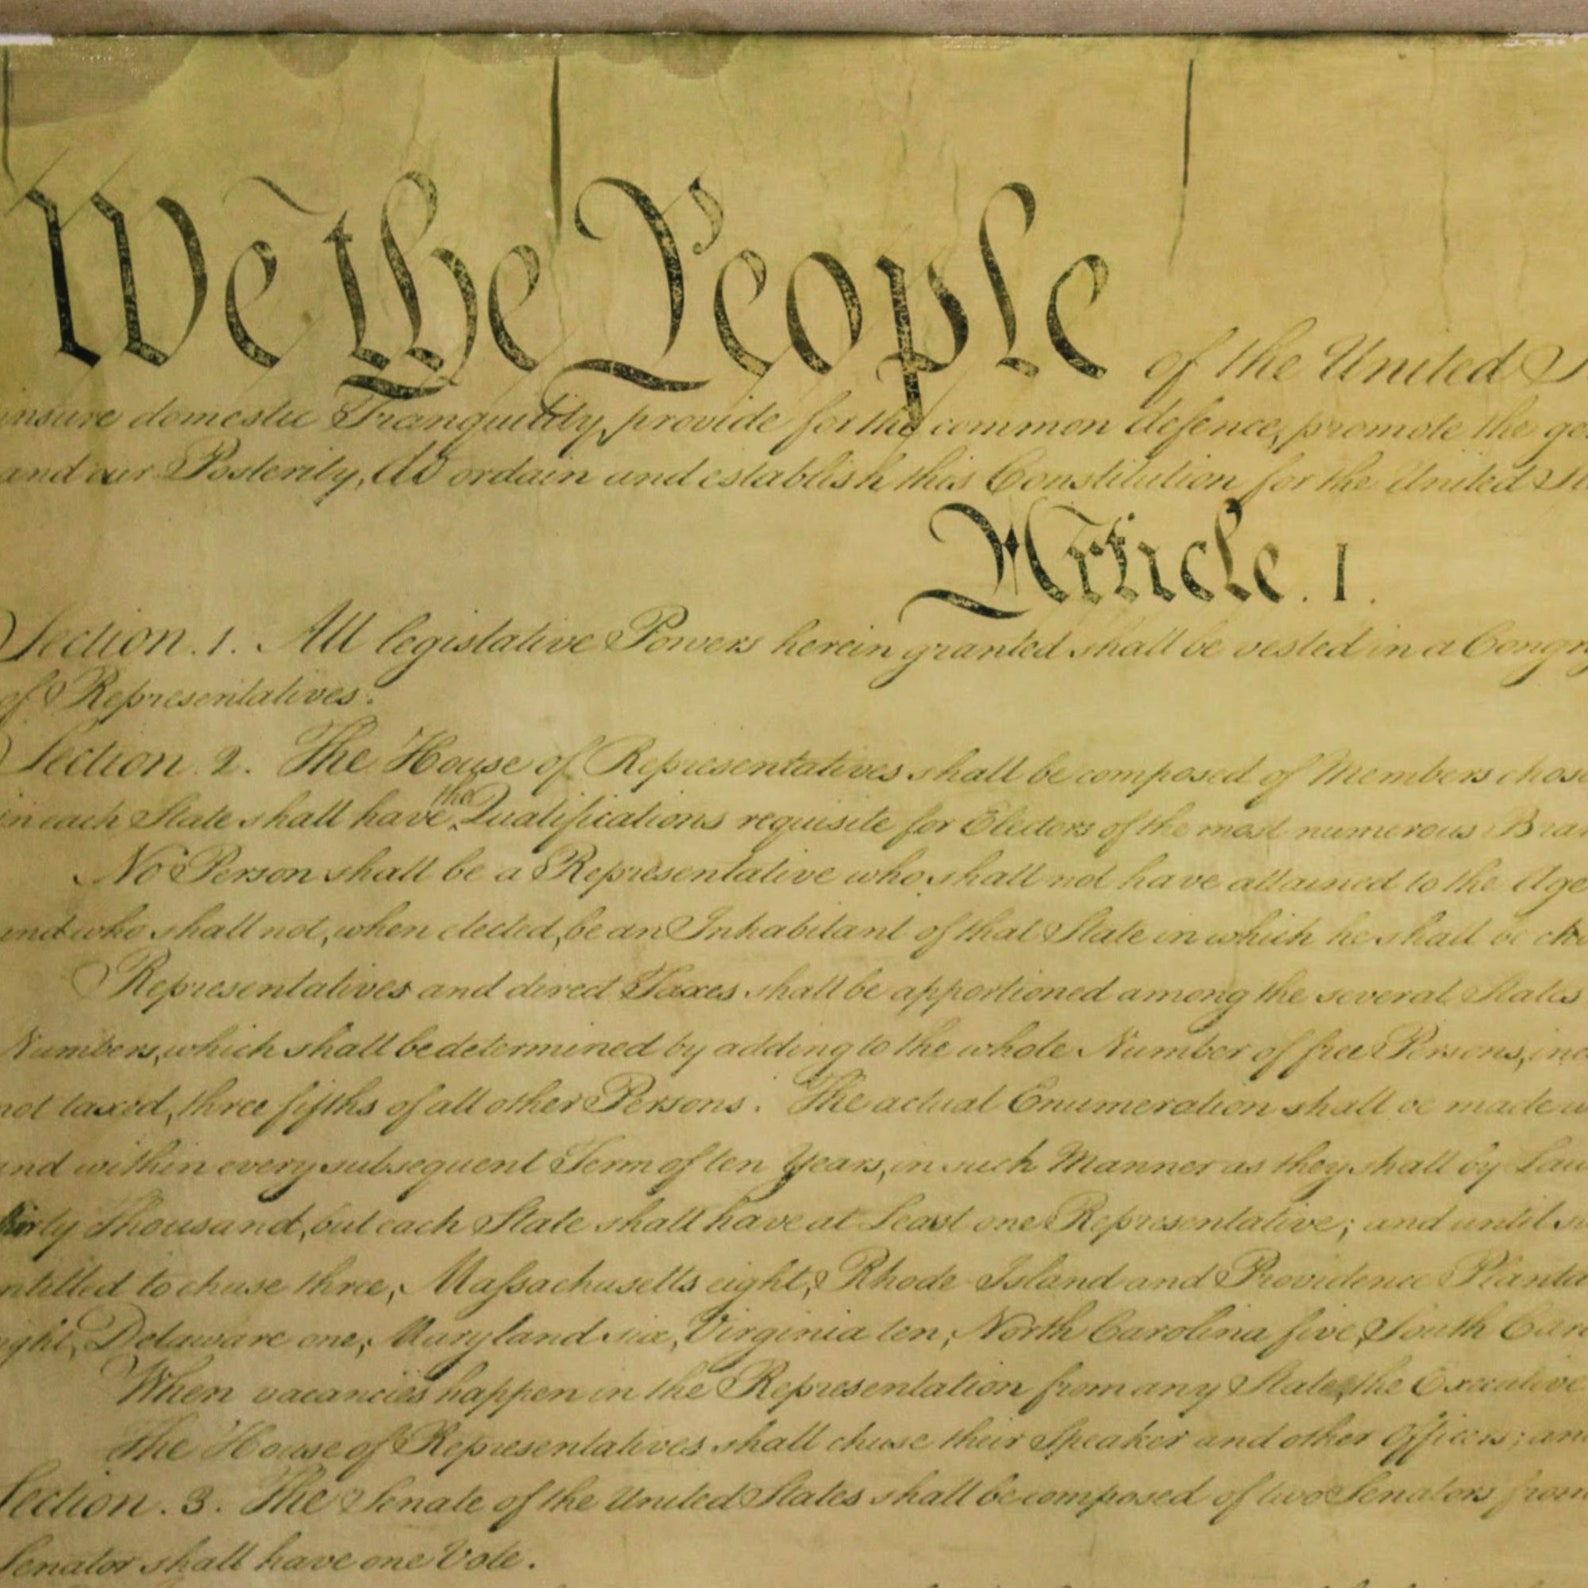 We the People of the United
insure domestic Tranquility, provide for the common defence, promote the
and our Posterity, do ordain and establish this Constitution for the United
Article. I.
Section. 1. All legislative Powers herein granted shall be vested in a Congr
of Representatives.
Section. 2. The House of Representatives shall be composed of Members chose
in each State shall have the Qualifications requisite for Electors of the most numerous Bran
No Person shall be a Representative who shall not have attained to the Age
and who shall not, when elected, be an Inhabitant of that State in which he shall be cho
Representatives and direct Taxes shall be apportioned among the several States
Numbers, which shall be determined by adding to the whole Number of free Persons, inc
not taxed, three fifths of all other Persons. The actual Enumeration shall be made w
and within every subsequent Term of ten Years, in such Manner as they shall by Law
thirty Thousand, but each State shall have at Least one Representative; and until su
ntitled to chuse three, Massachusetts eight, Rhode-Island and Providence Planta
ight, Delaware one, Maryland six, Virginia ten, North Carolina five, South Caro
When vacancies happen in the Representation from any State, the Executive
The House of Representatives shall chuse their Speaker and other Officers; and
Section. 3. The Senate of the United States shall be composed of two Senators from
Senator shall have one Vote.